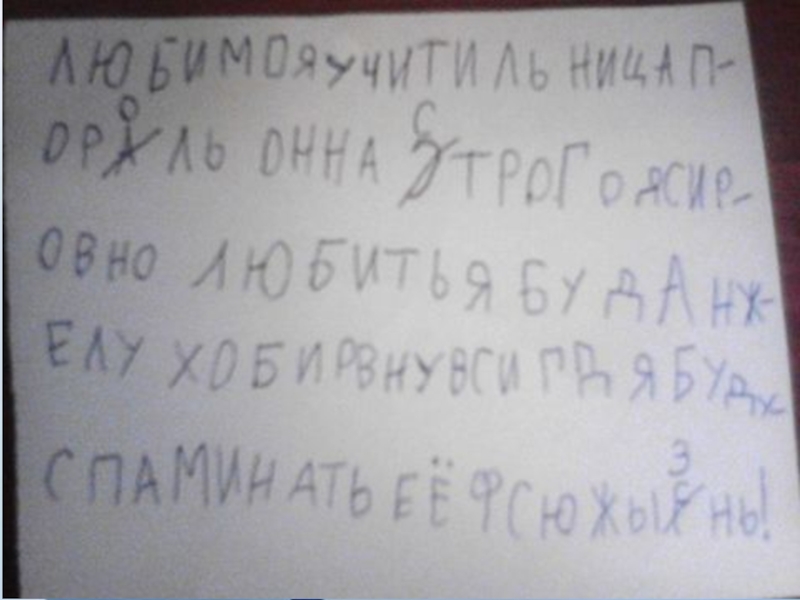 ЛЮБИМОЯУЧИТИЛЬНИЦАП-
ОРОЛЬ ОННА СТРОГО ЯСИР-
ОВНО ЛЮБИТЬЯ БУДАНЖ-
ЕЛУ ХОБИРВНУВСИГДЯ БУДУ
СПАМИНАТЬ ЕЁ ФСЮЖЫЗНЬ!